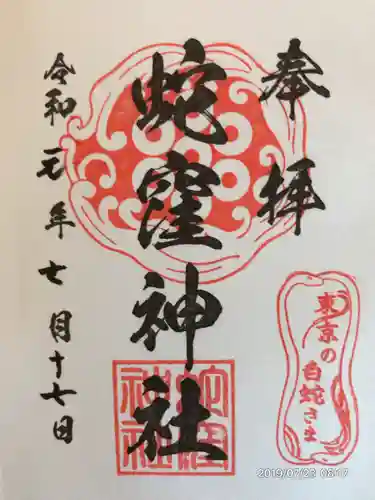 奉拝
蛇窪神社
令和元年七月十七日
東京の白蛇さま
蛇窪神社
2019/07/23 08:17